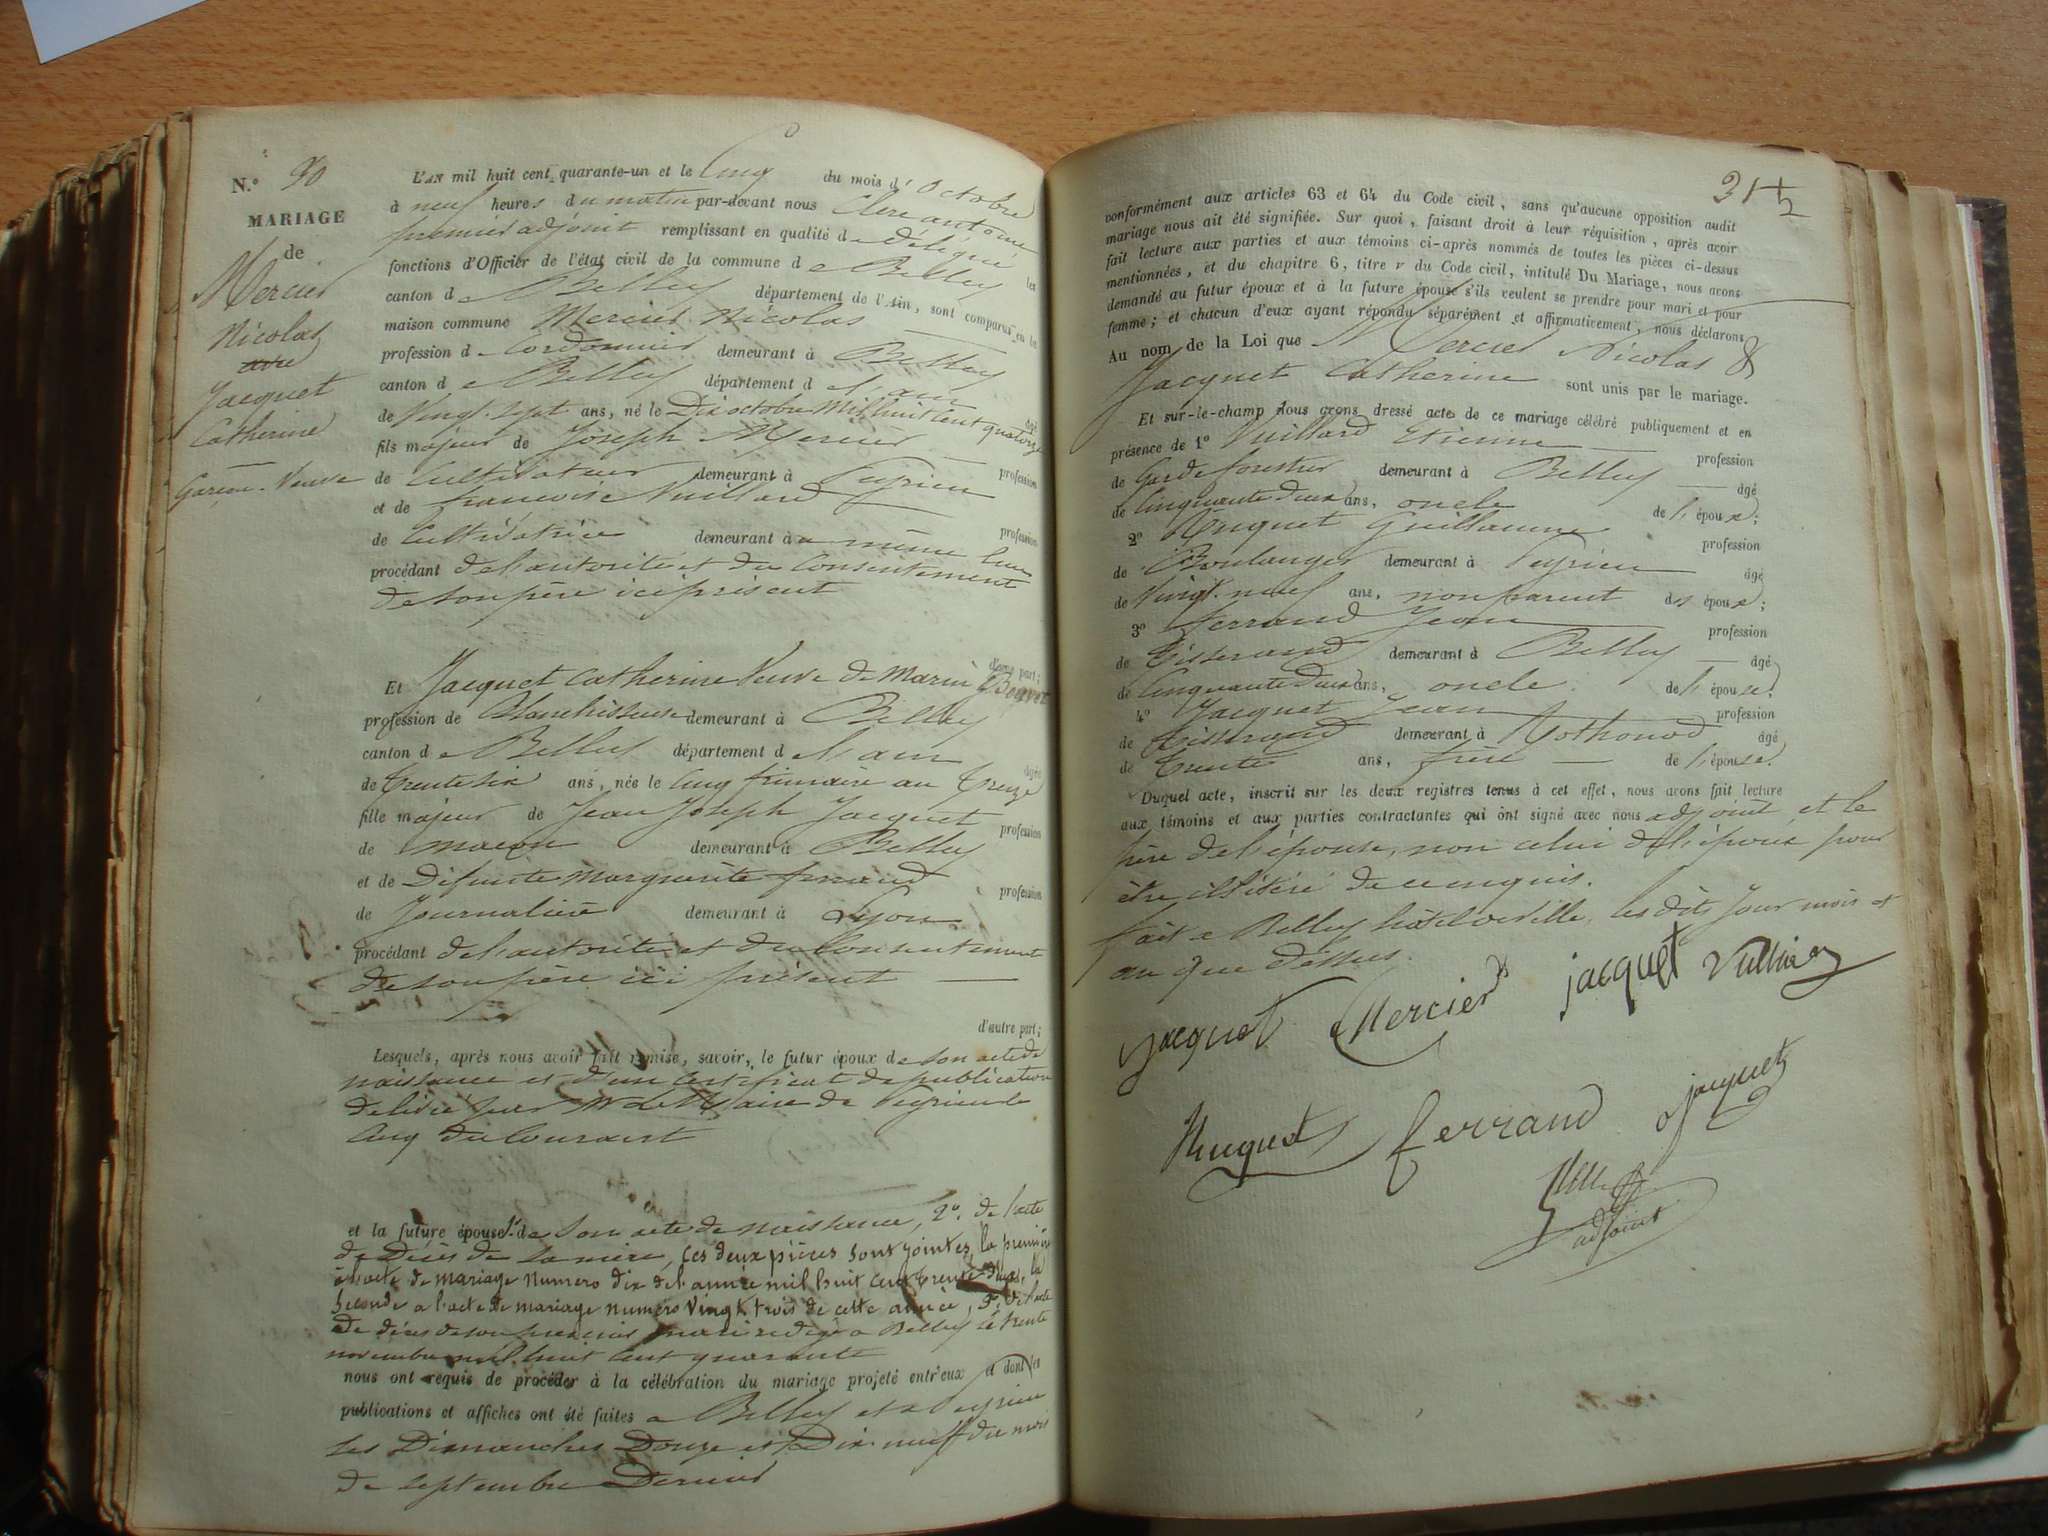 N.° 30
MARIAGE
de
Mercier
Nicolas
avec
Jacquet
Catherine
Garçon - Veuve
L'AN mil huit cent quarante-un et le Cinq du mois d'Octobre
à neuf heures du matin par-devant nous Clerc antoine
premier adjoint remplissant en qualité de délégué les
fonctions d'Officier de l'état civil de la commune de Belley
canton de Belley département de l'Ain, sont comparus en la
maison commune Mercier Nicolas
profession de Cordonnier demeurant à Belley
canton de Belley département de l'ain âgé
de Vingt-sept ans, né le Dix octobre Mil huit Cent quatorze
fils majeur de Joseph Mercier profession
de Cultivateur demeurant à Peyrieu
et de françoise Vuillard profession
de Cultivatrice demeurant à même lieu
procédant de l'autorité et du Consentement
de son père ici présent
d'une part;
Et Jacquet Catherine Veuve de Marin Bouvet
profession de Blanchisseuse demeurant à Belley
canton de Belley département de l'ain âgée
de trente six ans, née le cinq frimaire an treize
fille majeur de Jean Joseph Jacquet profession
de maçon demeurant à Belley
et de Défunte Marguerite ferrand profession
de Journalière demeurant à Lyon
procédant de l'autorité et du Consentement
de son père ici présent
d'autre part;
Lesquels, après nous avoir fait remise, savoir, le futur époux de son acte de
naissance et d'un certificat de publication
délivré par Mr Le Maire de Peyrieu le
Cinq du Courant
et la future épouse 1° de son acte de naissance, 2°. de l'acte
de Décès de sa mère, Ces deux pièces sont jointes, la première
à l'acte de mariage numero dix de l'année mil huit cent trente-deux, la
seconde a l'acte de mariage numero vingt trois de cette année, 3°. de l'acte
de décès de son premier mari redigé a Belley le trente
novembre mil huit cent quarante
nous ont requis de procéder à la célébration du mariage projeté entr'eux et dont les
publications et affiches ont été faites a Belley et a Peyrieu
les Dimanches Douze et Dix-neuf du mois
de septembre Dernier
31
conformément aux articles 63 et 64 du Code civil, sans qu'aucune opposition audit
mariage nous ait été signifiée. Sur quoi, faisant droit à leur réquisition, après avoir
fait lecture aux parties et aux témoins ci-après nommés de toutes les pièces ci-dessus
mentionnées, et du chapitre 6, titre v du Code civil, intitulé Du Mariage, nous avons
demandé au futur époux et à la future épouse s'ils veulent se prendre pour mari et pour
femme; et chacun d'eux ayant répondu séparément et affirmativement, nous déclarons
Au nom de la Loi que Mercier Nicolas &
Jacquet Catherine sont unis par le mariage.
Et sur-le-champ nous avons dressé acte de ce mariage célébré publiquement et en
présence de 1° Vuillard Etienne profession
de Garde forestier demeurant à Belley âgé
de Cinquante deux ans, oncle de l'époux;
2° Huguet Guillaume profession
de Boulanger demeurant à Peyrieu âgé
de Vingt-neuf ans, non parent des époux;
3° ferrand Jean profession
de Tisserand demeurant à Belley âgé
de Cinquante deux ans, oncle de l'épouse.
4° Jacquet Jean profession
de Tisserand demeurant à Rothonod âgé
de trente ans, frère de l'épouse.
Duquel acte, inscrit sur les deux registres tenus à cet effet, nous avons fait lecture
aux témoins et aux parties contractantes qui ont signé avec nous adjoint et le
père de l'épouse, non celui de l'époux pour
être illitéré de ce enquis.
fait a Belley hôtel de ville, les dits jour mois et
an que dessus.
jacquet Mercier jacquet
Huguet ferrand jacquet
adjoint